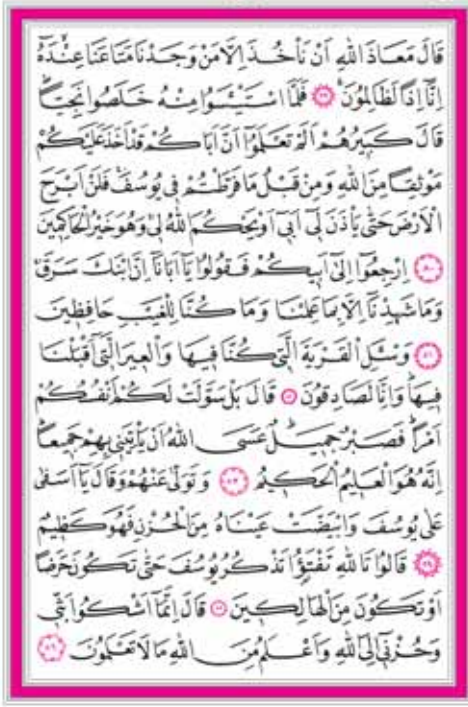 قَالَ مَعَاذَ اللّٰهِ اَنْ نَأْخُذَ اِلَّا مَنْ وَجَدْنَا مَتَاعَنَا عِنْدَهُٓ
اِنَّٓا اِذًا لَظَالِمُونَ ﴿٧٩﴾ فَلَمَّا اسْتَيْـَٔسُوا مِنْهُ خَلَصُوا نَجِيًّاۜ
قَالَ كَبِيرُهُمْ اَلَمْ تَعْلَمُٓوا اَنَّ اَبَاكُمْ قَدْ اَخَذَ عَلَيْكُمْ
مَوْثِقًا مِنَ اللّٰهِ وَمِنْ قَبْلُ مَا فَرَّطْتُمْ فِي يُوسُفَۚ فَلَنْ اَبْرَحَ
الْاَرْضَ حَتّٰى يَأْذَنَ لِٓي اَبِٓي اَوْ يَحْكُمَ اللّٰهُ لِيۚ وَهُوَ خَيْرُ الْحَاكِمِينَ
﴿٨٠﴾ اِرْجِعُٓوا اِلٰٓى اَبِيكُمْ فَقُولُوا يَٓا اَبَانَٓا اِنَّ ابْنَكَ سَرَقَۚ
وَمَا شَهِدْنَٓا اِلَّا بِمَا عَلِمْنَا وَمَا كُنَّا لِلْغَيْبِ حَافِظِينَ
﴿٨١﴾ وَسْـَٔلِ الْقَرْيَةَ الَّتِي كُنَّا فِيهَا وَالْعِيرَ الَّتِٓي اَقْبَلْنَا
فِيهَاۜ وَاِنَّا لَصَادِقُونَ ﴿٨٢﴾ قَالَ بَلْ سَوَّلَتْ لَكُمْ اَنْفُسُكُمْ
اَمْرًاۜ فَصَبْرٌ جَمِيلٌۜ عَسَى اللّٰهُ اَنْ يَأْتِيَنِي بِهِمْ جَمِيعًاۜ
اِنَّهُ هُوَ الْعَلِيمُ الْحَكِيمُ ﴿٨٣﴾ وَتَوَلّٰى عَنْهُمْ وَقَالَ يَٓا اَسَفٰى
عَلٰى يُوسُفَ وَابْيَضَّتْ عَيْنَاهُ مِنَ الْحُزْنِ فَهُوَ كَظِيمٌ
﴿٨٤﴾ قَالُوا تَاللّٰهِ تَفْتَؤُ۬ا تَذْكُرُ يُوسُفَ حَتّٰى تَكُونَ حَرَضًا
اَوْ تَكُونَ مِنَ الْهَالِكِينَ ﴿٨٥﴾ قَالَ اِنَّمَٓا اَشْكُوا بَثِّي
وَحُزْنِٓي اِلَى اللّٰهِ وَاَعْلَمُ مِنَ اللّٰهِ مَا لَا تَعْلَمُونَ ﴿٨٦﴾